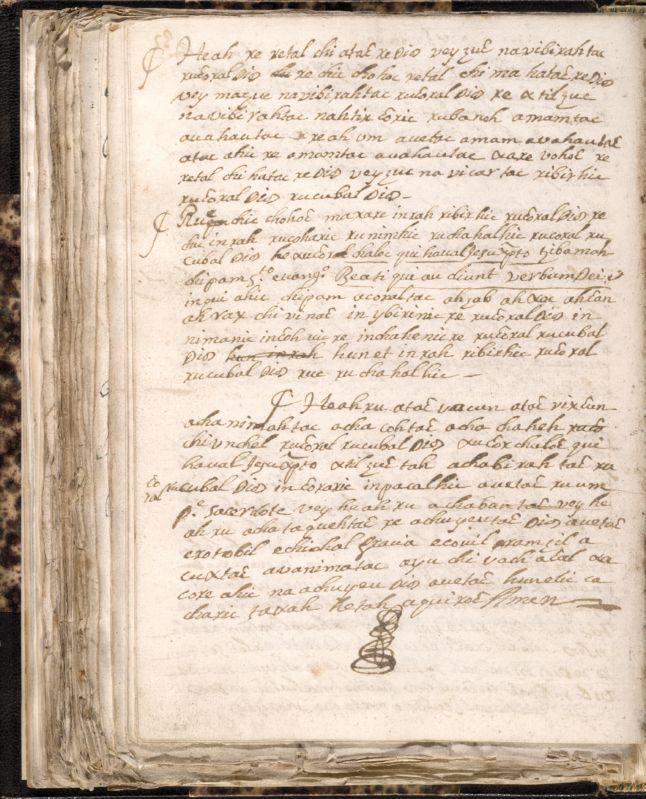 Heah re retal chi atac re Dios vey zuc na vibirahtac
rucoral Dios re chic chohoc retal chi ma hatac re Dios
vey mac zuc na vibirahtac rucoral Dios re xtil zuc
na vibirahtac nahtir coric rubanoh amamtac
avahautac reah vm avetac amam avahautac
atac ahic re amamtac avahautac xare vohoc re
retal chi hatac re Dios vey zuc na vicar tac ribirhic
rucoral Dios ru cubal Dios -
Rue chic chohoc maxare inrah ribirhic rucoral Dios re
chi inrah rucoharic ru nimhic ruchahalhic rucoral ru
cubal Dios he rucoral chaloc qui haual Jesu Xpto tzibamah
chipam sto euango Beati qui audiunt verbum Dei
in qui ahic chipam acoral tac ah job ah xoc ahcan
ah rax chi vinac in ybirinic re rucoral Dios in
nimanic incoh nic re inchahenic re rucoral rucubal
Dios hunet inrah ribirhic rucoral
rucubal Dios rue ru chahalhic -
Heah ru atac vacun atac vixcun
acha nimahtac acha cohtac acha chaheh
chivnchel rucoral rucubal Dios xucorchiloc qui
haual Jesu Xpto xtil zuc tah achabirahtac ru
co ral rucubal Dios in coraric inpacalhic avetac ru um
Pe sacerdote vey heah ru achabantac vey he
ah ru achataquehtac re achuyeutac Dios avetac
exotobil echichal gracia ecouil pramzil a
cuxtac avanimatac ayu chi vach acal xa
core ahic na achuyeu Dios avetac hunelic ca
charic taxah hetah aquixoc Amen